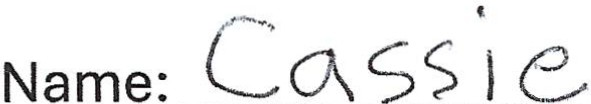 Name: Cassie